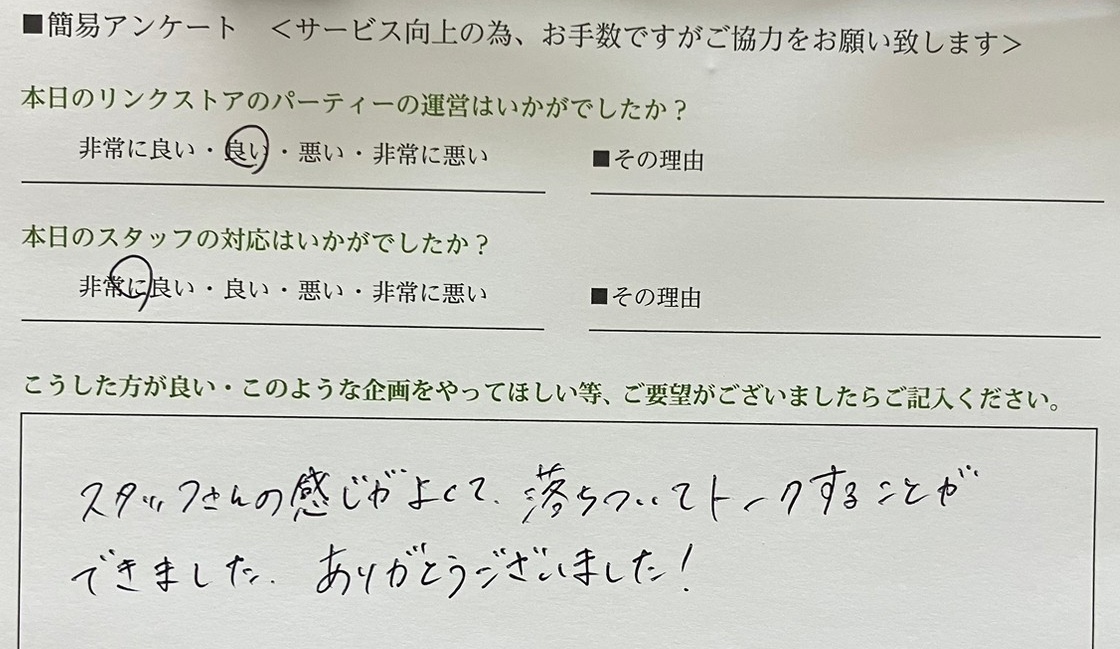 ■簡易アンケート ＜サービス向上の為、お手数ですがご協力をお願い致します＞
本日のリンクストアのパーティーの運営はいかがでしたか？
非常に良い・良い・悪い・非常に悪い ■その理由
本日のスタッフの対応はいかがでしたか？
非常に良い・良い・悪い・非常に悪い ■その理由
こうした方が良い・このような企画をやってほしい等、ご要望がございましたらご記入ください。
スタッフさんの感じがよくて、落ちついてトークすることが
できました。ありがとうございました！